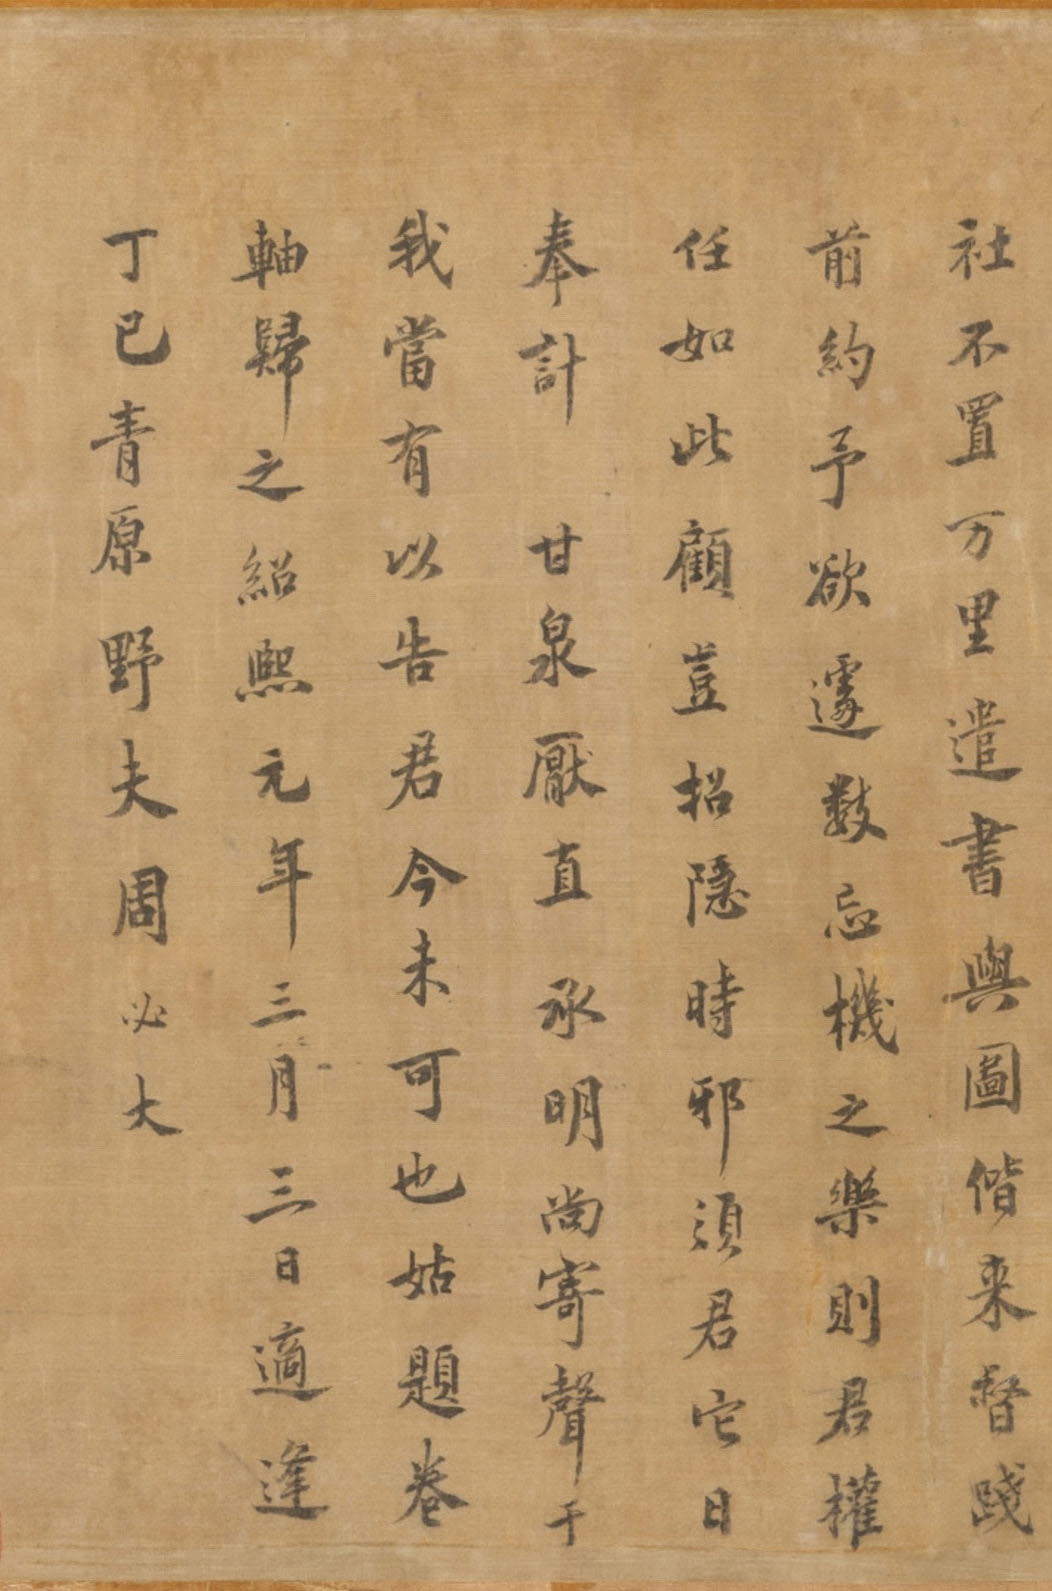 社不置万里遣書與圖偕来督踐
前約予欲遽數忘機之樂則君權
任如此顧豈招隠時邪須君它日
奉計　甘泉厭直承明尚寄聲于
我當有以告君今未可也姑題卷
軸歸之紹熙元年三月三日適逢
丁巳青原野夫周必大